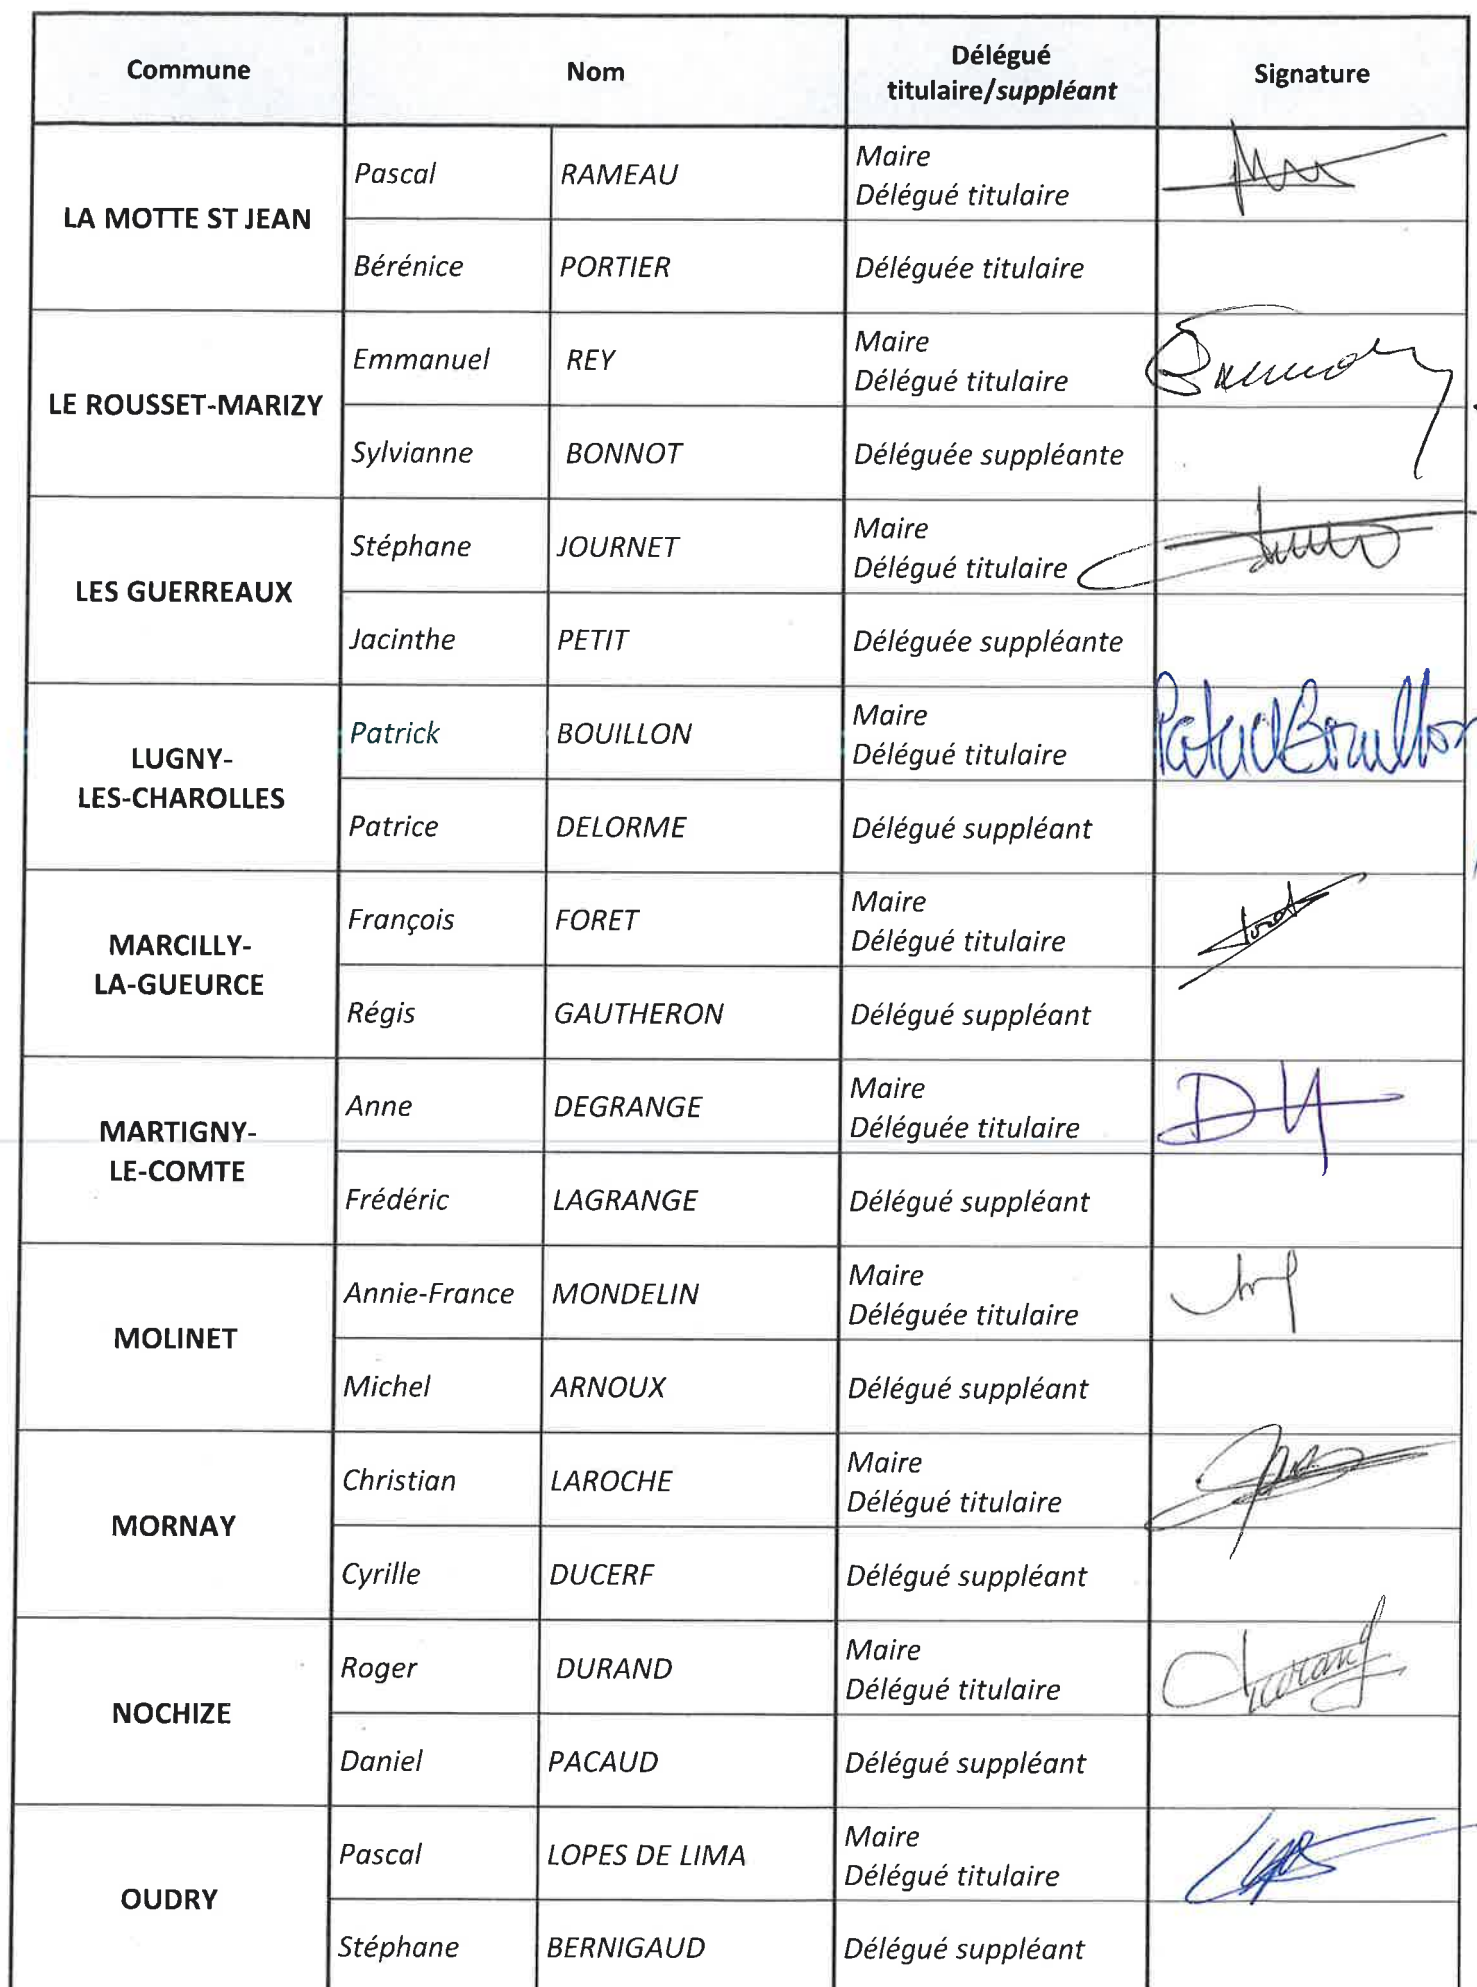 Commune
Nom
Délégué
titulaire/suppléant
Signature
LA MOTTE ST JEAN
Pascal RAMEAU
Maire
Délégué titulaire
Bérénice PORTIER
Déléguée titulaire
LE ROUSSET-MARIZY
Emmanuel REY
Maire
Délégué titulaire
Sylvianne BONNOT
Déléguée suppléante
LES GUERREAUX
Stéphane JOURNET
Maire
Délégué titulaire
Jacinthe PETIT
Déléguée suppléante
LUGNY-
LES-CHAROLLES
Patrick BOUILLON
Maire
Délégué titulaire
Patrick Bouillon
Patrice DELORME
Délégué suppléant
MARCILLY-
LA-GUEURCE
François FORET
Maire
Délégué titulaire
Régis GAUTHERON
Délégué suppléant
MARTIGNY-
LE-COMTE
Anne DEGRANGE
Maire
Déléguée titulaire
Frédéric LAGRANGE
Délégué suppléant
MOLINET
Annie-France MONDELIN
Maire
Déléguée titulaire
Michel ARNOUX
Délégué suppléant
MORNAY
Christian LAROCHE
Maire
Délégué titulaire
Cyrille DUCERF
Délégué suppléant
NOCHIZE
Roger DURAND
Maire
Délégué titulaire
Durand
Daniel PACAUD
Délégué suppléant
OUDRY
Pascal LOPES DE LIMA
Maire
Délégué titulaire
Stéphane BERNIGAUD
Délégué suppléant